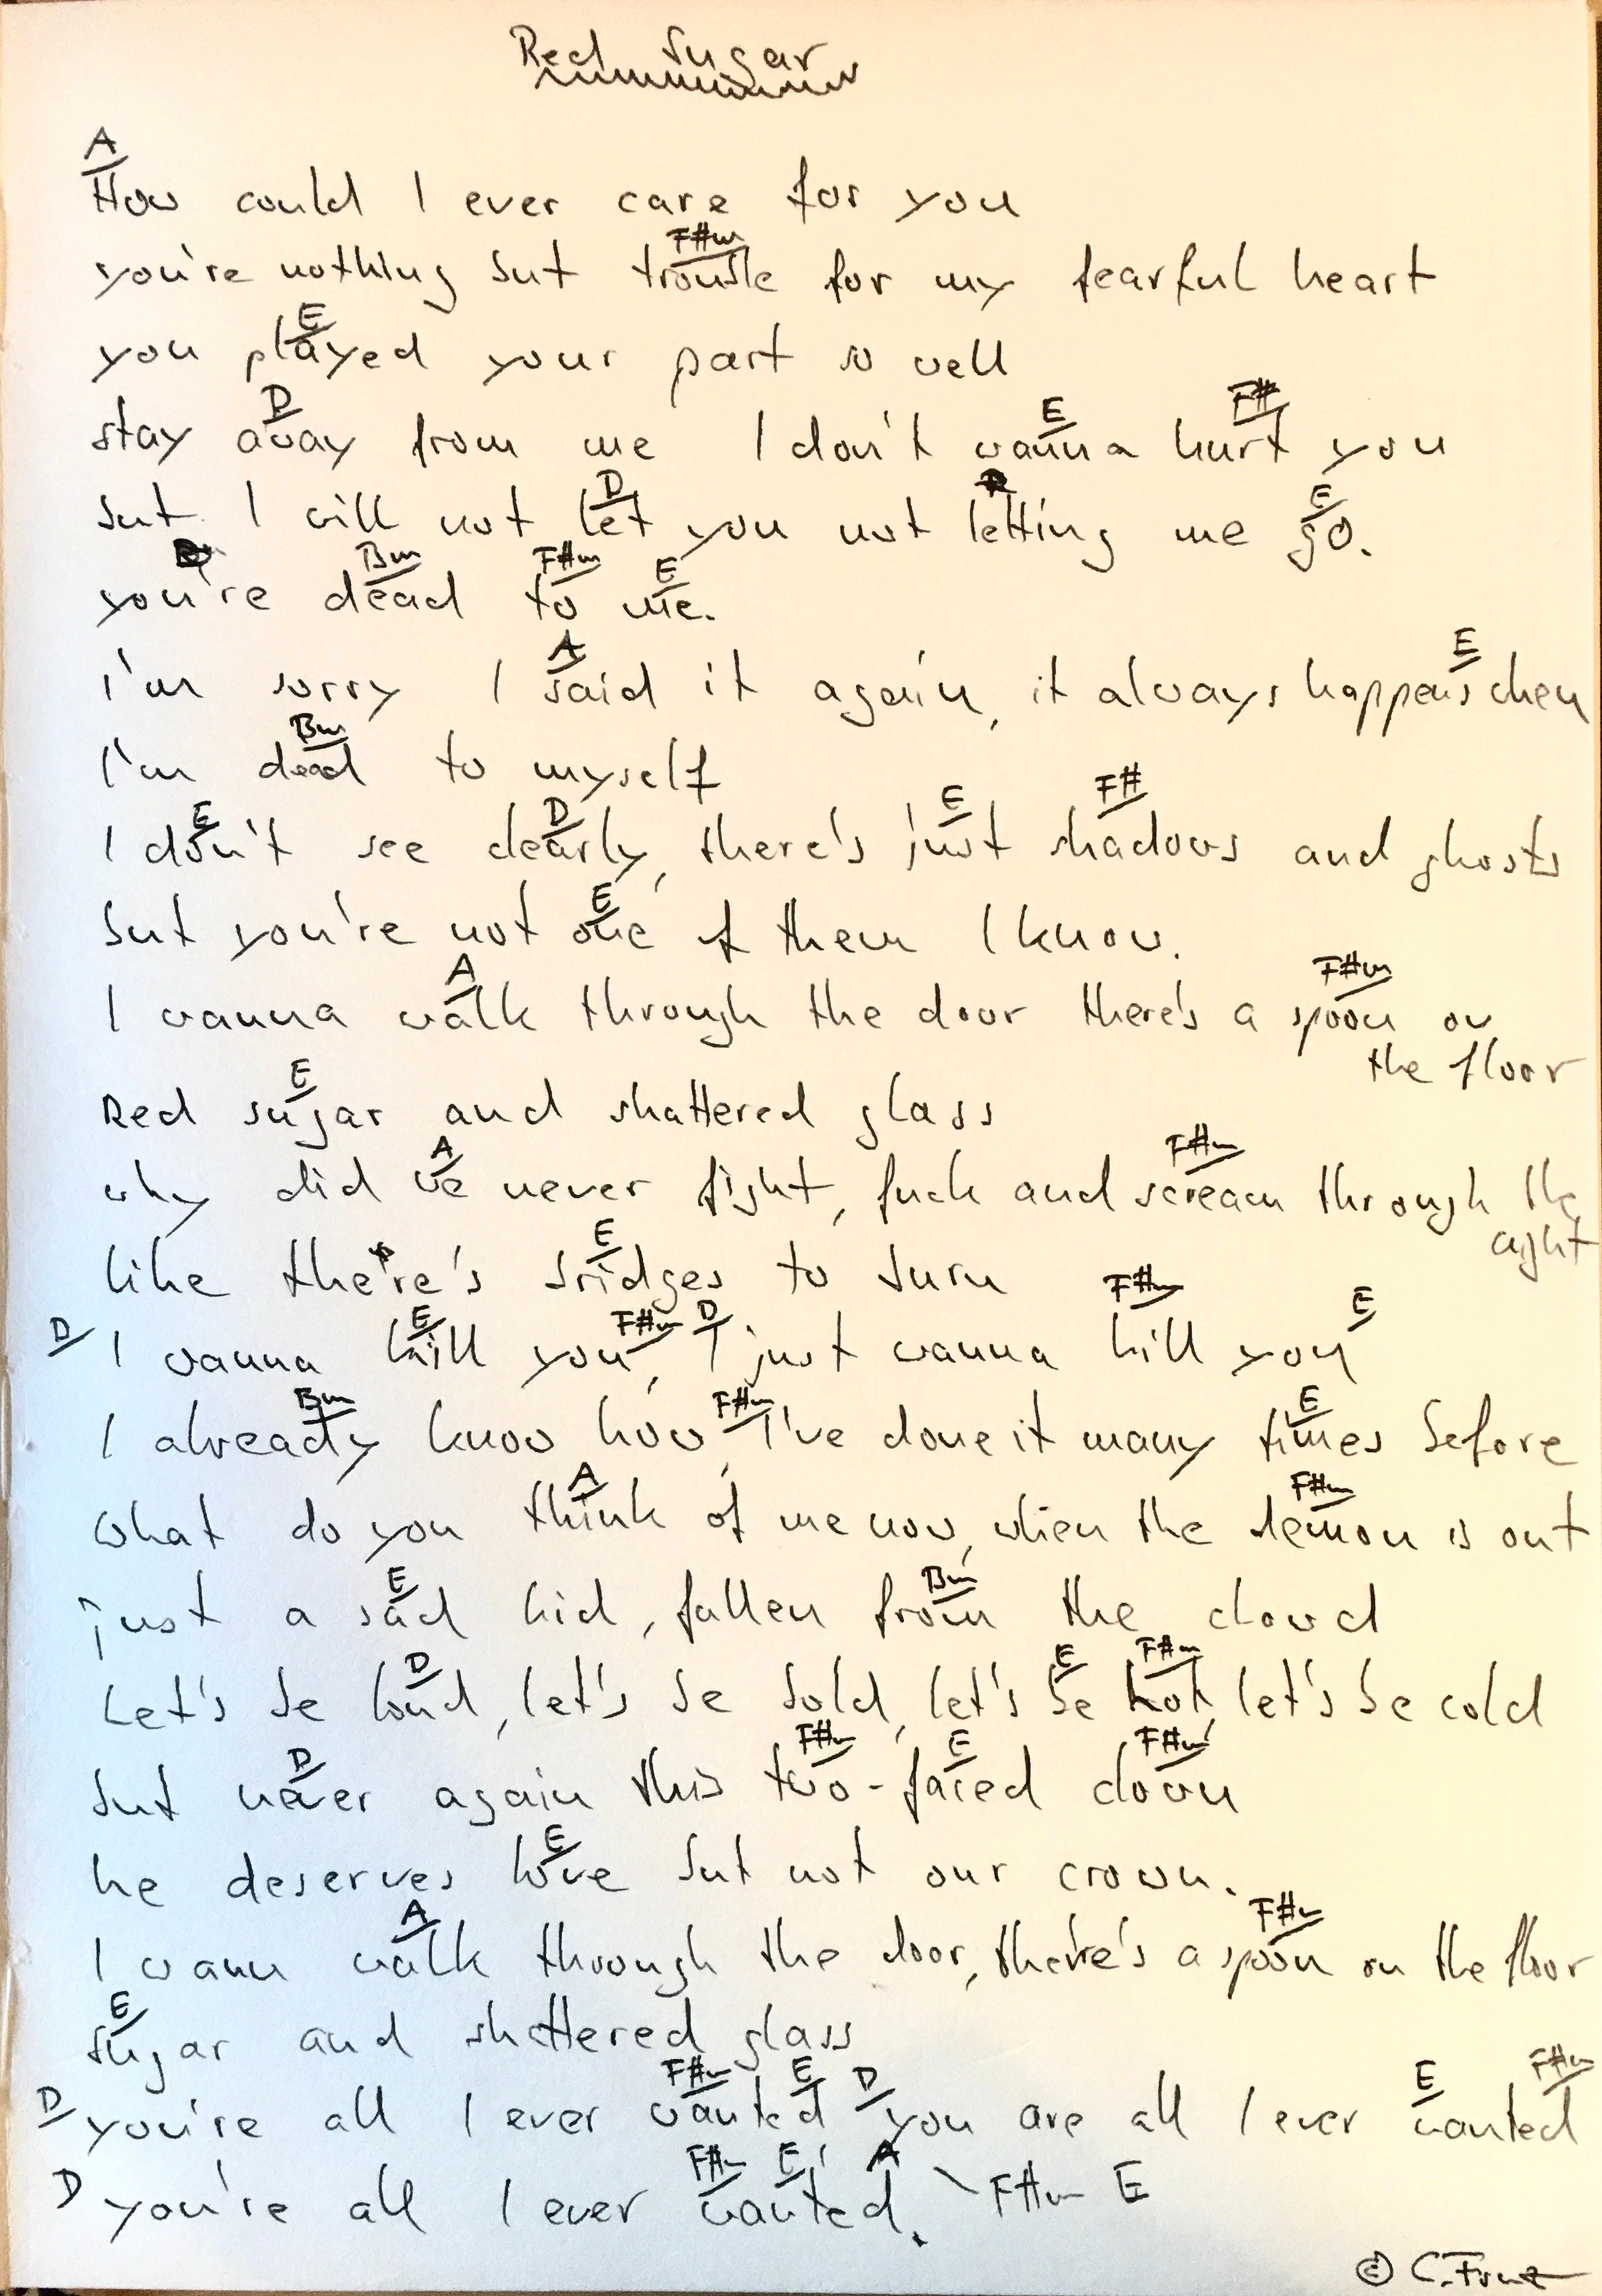 Red Sugar
A
How could I ever care for you
F#m
you're nothing but trouble for my fearful heart
E
you played your part so well
D E F#
stay away from me I don't wanna hurt you
D E
but I will not let you not letting me go.
Bm F#m E
you're dead to me.
A E
I'm sorry I said it again, it always happens when
Bm
I'm dead to myself
E D E F#
I don't see clearly, there's just shadows and ghosts
E
but you're not one of them I know.
A F#m
I wanna walk through the door there's a spoon on
the floor
E
Red sugar and shattered glass
A F#m
why did we never fight, fuck and scream through the
night
E
like there's bridges to burn
D E F#m D F#m E
I wanna kill you, I just wanna kill you
Bm F#m E
I already know how, I've done it many times before
A F#m
What do you think of me now, when the demon is out
E Bm
just a sad kid, fallen from the cloud
D E F#m
Let's be loud, let's be bold, let's be hot, let's be cold
D F#m E F#m
but never again this two-faced clown
E
he deserves love but not our crown.
A F#m
I wann walk through the door, there's a spoon on the floor
E
sugar and shattered glass
D F#m E D E F#m
you're all I ever wanted, you are all I ever wanted
D F#m E A F#m E
you're all I ever wanted.
© C.